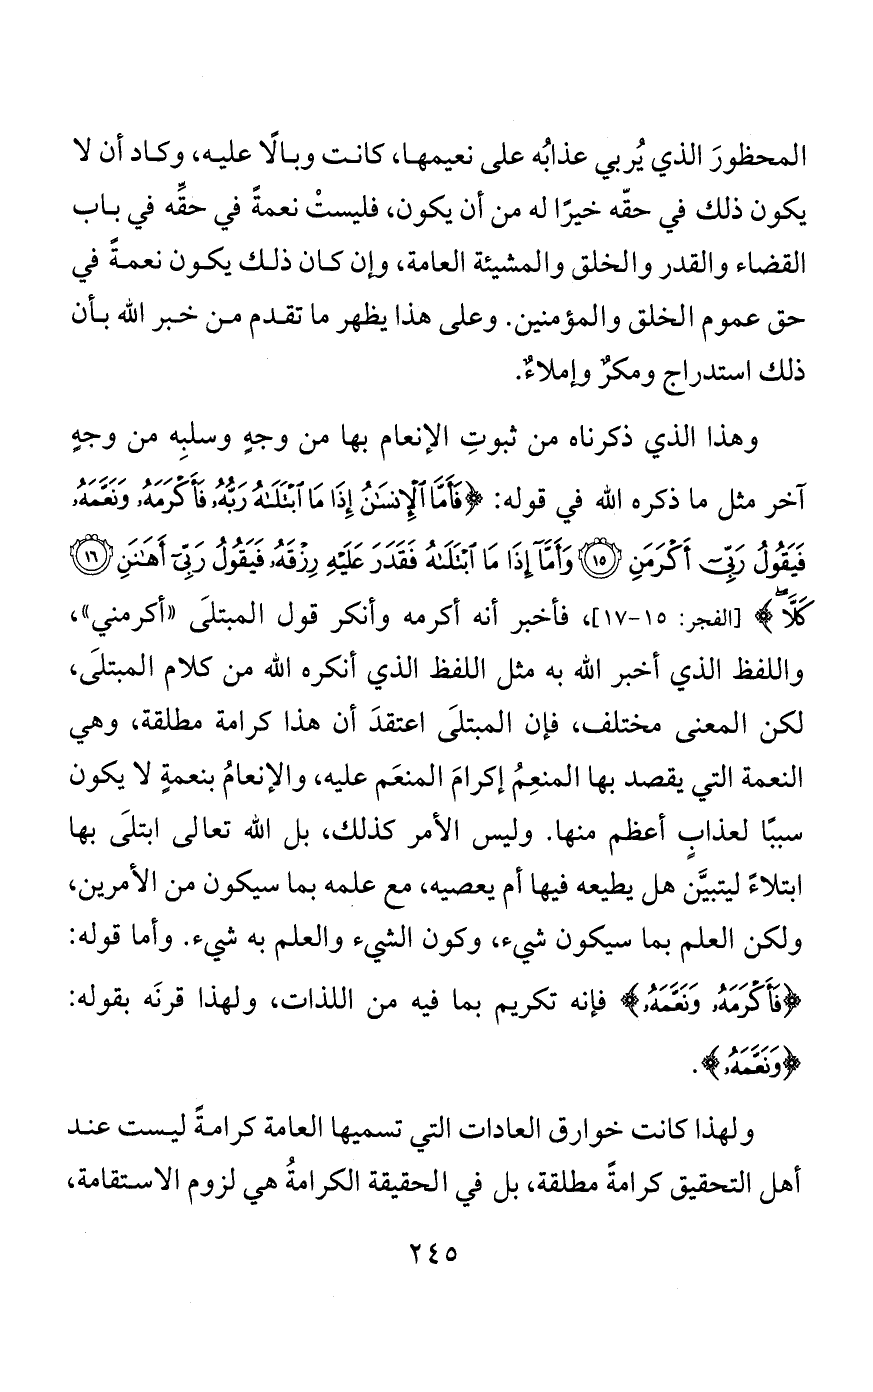 المحظورَ الذي يُربي عذابُه على نعيمها، كانت وبالًا عليه، وكاد أن لا
يكون ذلك في حقّه خيرًا له من أن يكون، فليستْ نعمةً في حقِّه في باب
القضاء والقدر والخلق والمشيئة العامة، وإن كان ذلك يكون نعمةً في
حق عموم الخلق والمؤمنين. وعلى هذا يظهر ما تقدم من خبر الله بأن
ذلك استدراج ومكرٌ وإملاءٌ.
وهذا الذي ذكرناه من ثبوتِ الإنعام بها من وجهٍ وسلبِه من وجهٍ
آخر مثل ما ذكره الله في قوله: ﴿فَأَمَّا ٱلْإِنسَٰنُ إِذَا مَا ٱبْتَلَىٰهُ رَبُّهُۥ فَأَكْرَمَهُۥ وَنَعَّمَهُۥ
فَيَقُولُ رَبِّىٓ أَكْرَمَنِ ۝١٥ وَأَمَّآ إِذَا مَا ٱبْتَلَىٰهُ فَقَدَرَ عَلَيْهِ رِزْقَهُۥ فَيَقُولُ رَبِّىٓ أَهَٰنَنِ ۝١٦
كَلَّا ۖ﴾ [الفجر: ١٥-١٧]، فأخبر أنه أكرمه وأنكر قول المبتلَى «أكرمني»،
واللفظ الذي أخبر الله به مثل اللفظ الذي أنكره الله من كلام المبتلَى،
لكن المعنى مختلف، فإن المبتلَى اعتقدَ أن هذا كرامة مطلقة، وهي
النعمة التي يقصد بها المنعِمُ إكرامَ المنعَم عليه، والإنعامُ بنعمةٍ لا يكون
سببًا لعذابٍ أعظم منها. وليس الأمر كذلك، بل الله تعالى ابتلَى بها
ابتلاءً ليتبيَّن هل يطيعه فيها أم يعصيه، مع علمه بما سيكون من الأمرين،
ولكن العلم بما سيكون شيء، وكون الشيء والعلم به شيء. وأما قوله:
﴿فَأَكْرَمَهُۥ وَنَعَّمَهُۥ﴾ فإنه تكريم بما فيه من اللذات، ولهذا قرنَه بقوله:
﴿وَنَعَّمَهُۥ﴾.
ولهذا كانت خوارق العادات التي تسميها العامة كرامةً ليست عند
أهل التحقيق كرامةً مطلقة، بل في الحقيقة الكرامةُ هي لزوم الاستقامة،
٢٤٥